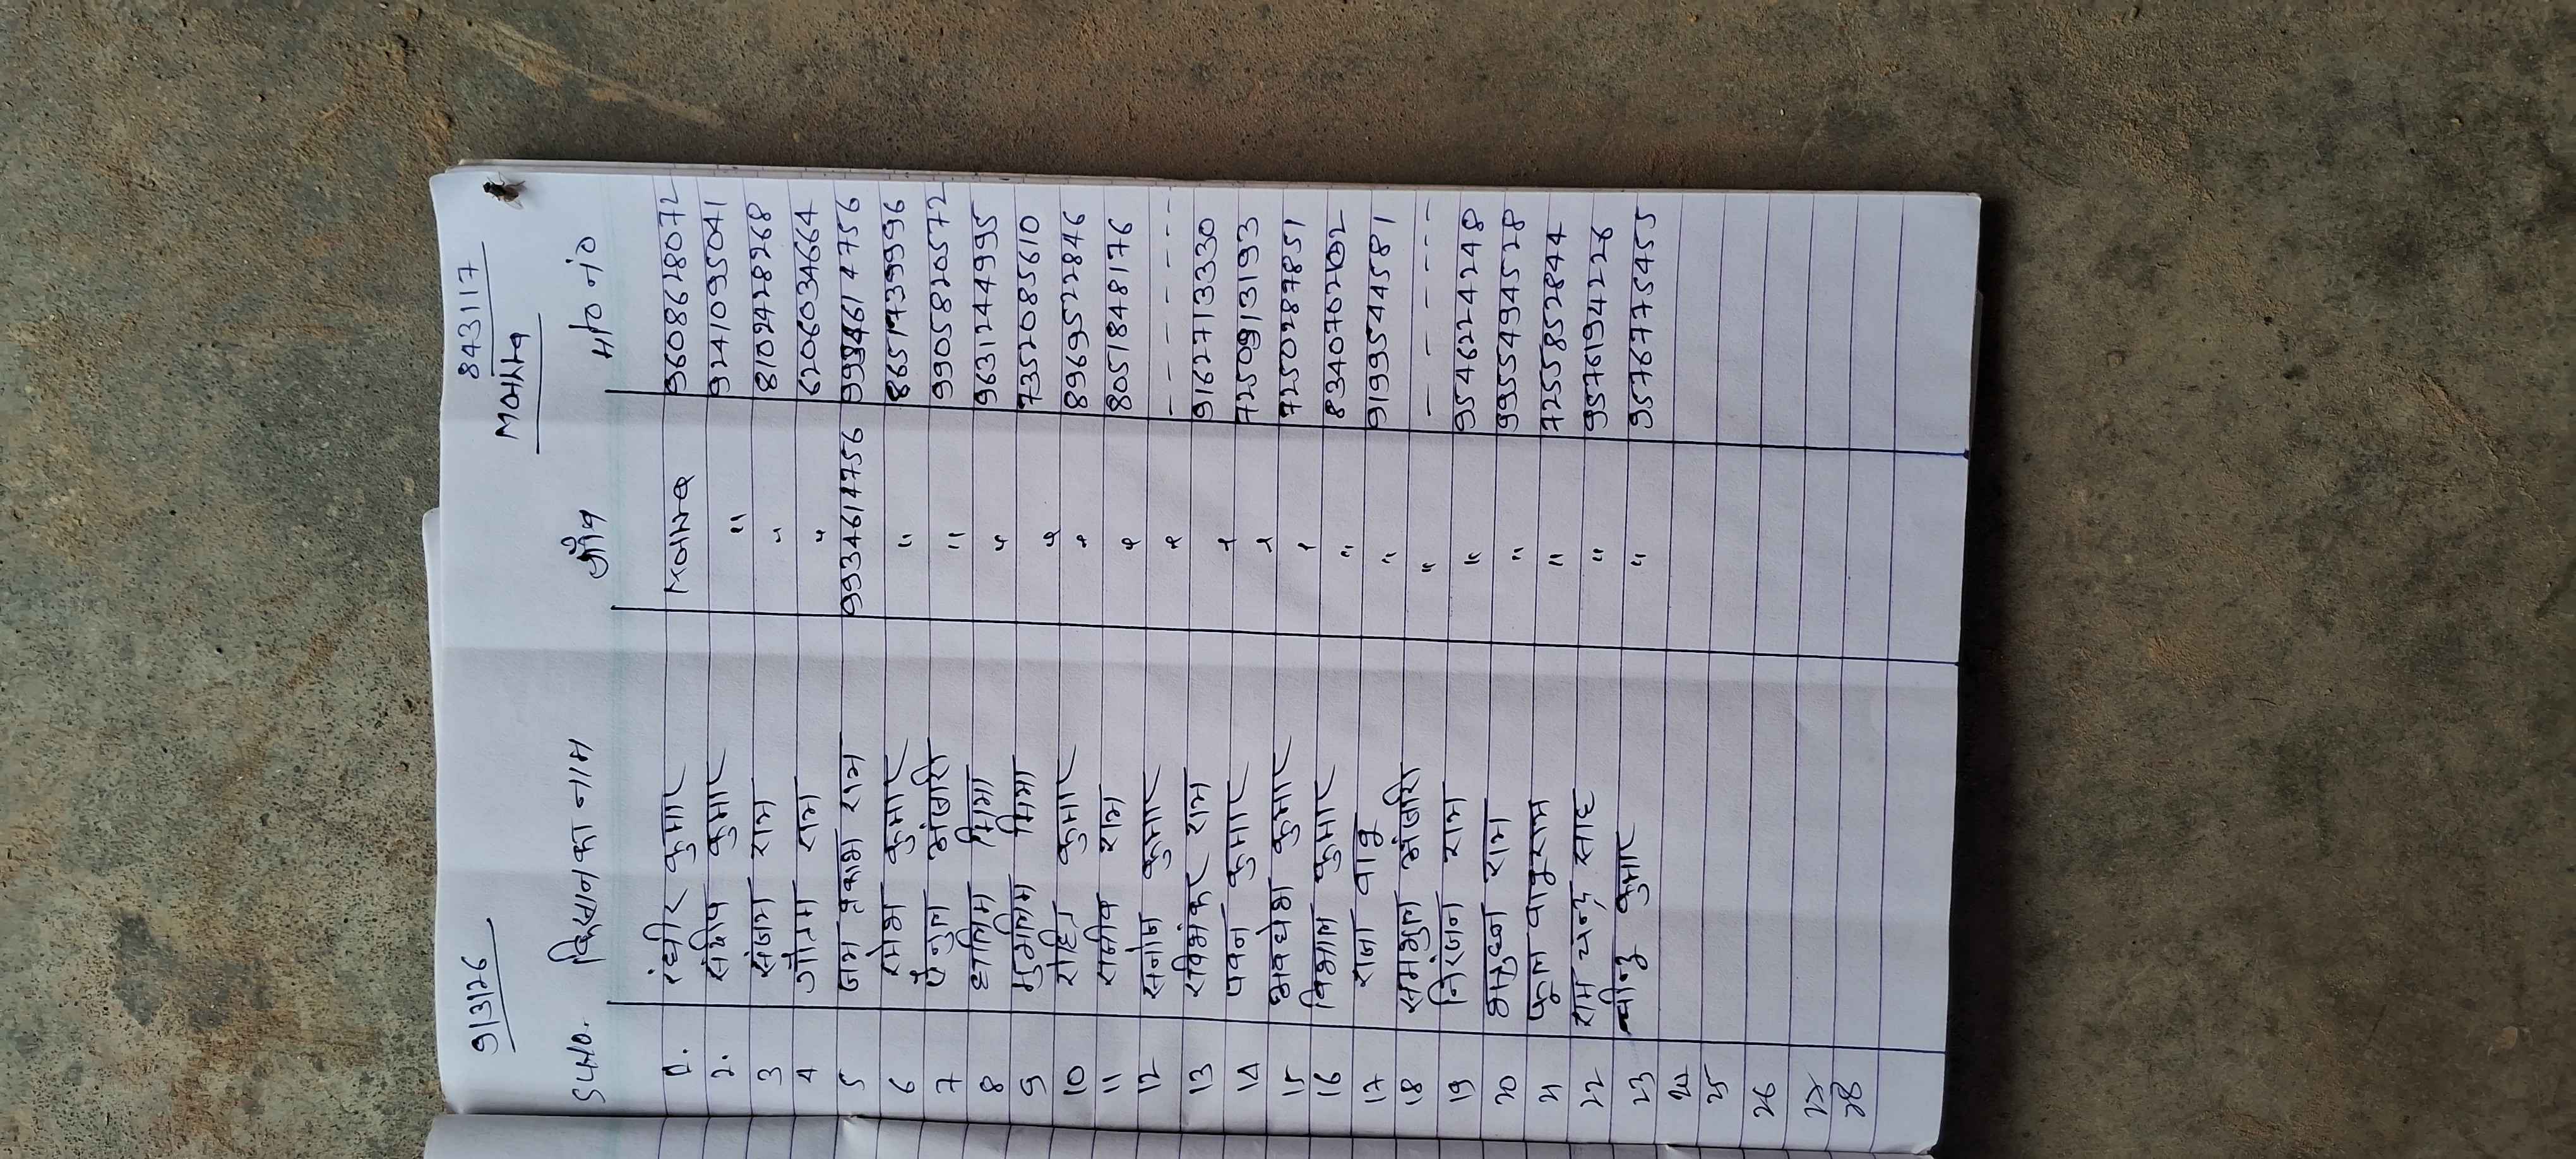 9/3/26 843117
मलाही
S.No. किसान का नाम गाँव मो० नं०
1. रंधीर कुमार 9608628072
2. संदीप कुमार " 9241095041
3 संजय राम " 8102428268
4 गौतम राम " 6206034664
5 जय प्रकाश राम 9934614756 9934614756
6 रमेश कुमार " 8651739996
7 अंसारी " 9905820572
8 मियां " 9631244995
9 मुसलिम मियां " 7352085610
10 रोहित कुमार " 8969522846
11 राजीव राम " 8051848176
12 सनोज कुमार " - - - - - -
13 रविशंकर राम " 9162713330
14 पवन कुमार " 7250913193
15 अवधेश कुमार " 7250287851
16 विशाल कुमार " 8340702102
17 राजा बाबु " 9199544581
18 समशुल अंसारी " - - - - - -
19 निरंजन राम " 9546224248
20 राम " 9955494528
21 फूल बाबु राम " 7255852844
22 राम चन्द्र साह " 9576194226
23 कुमार " 9576775455
24
25
26
27
28